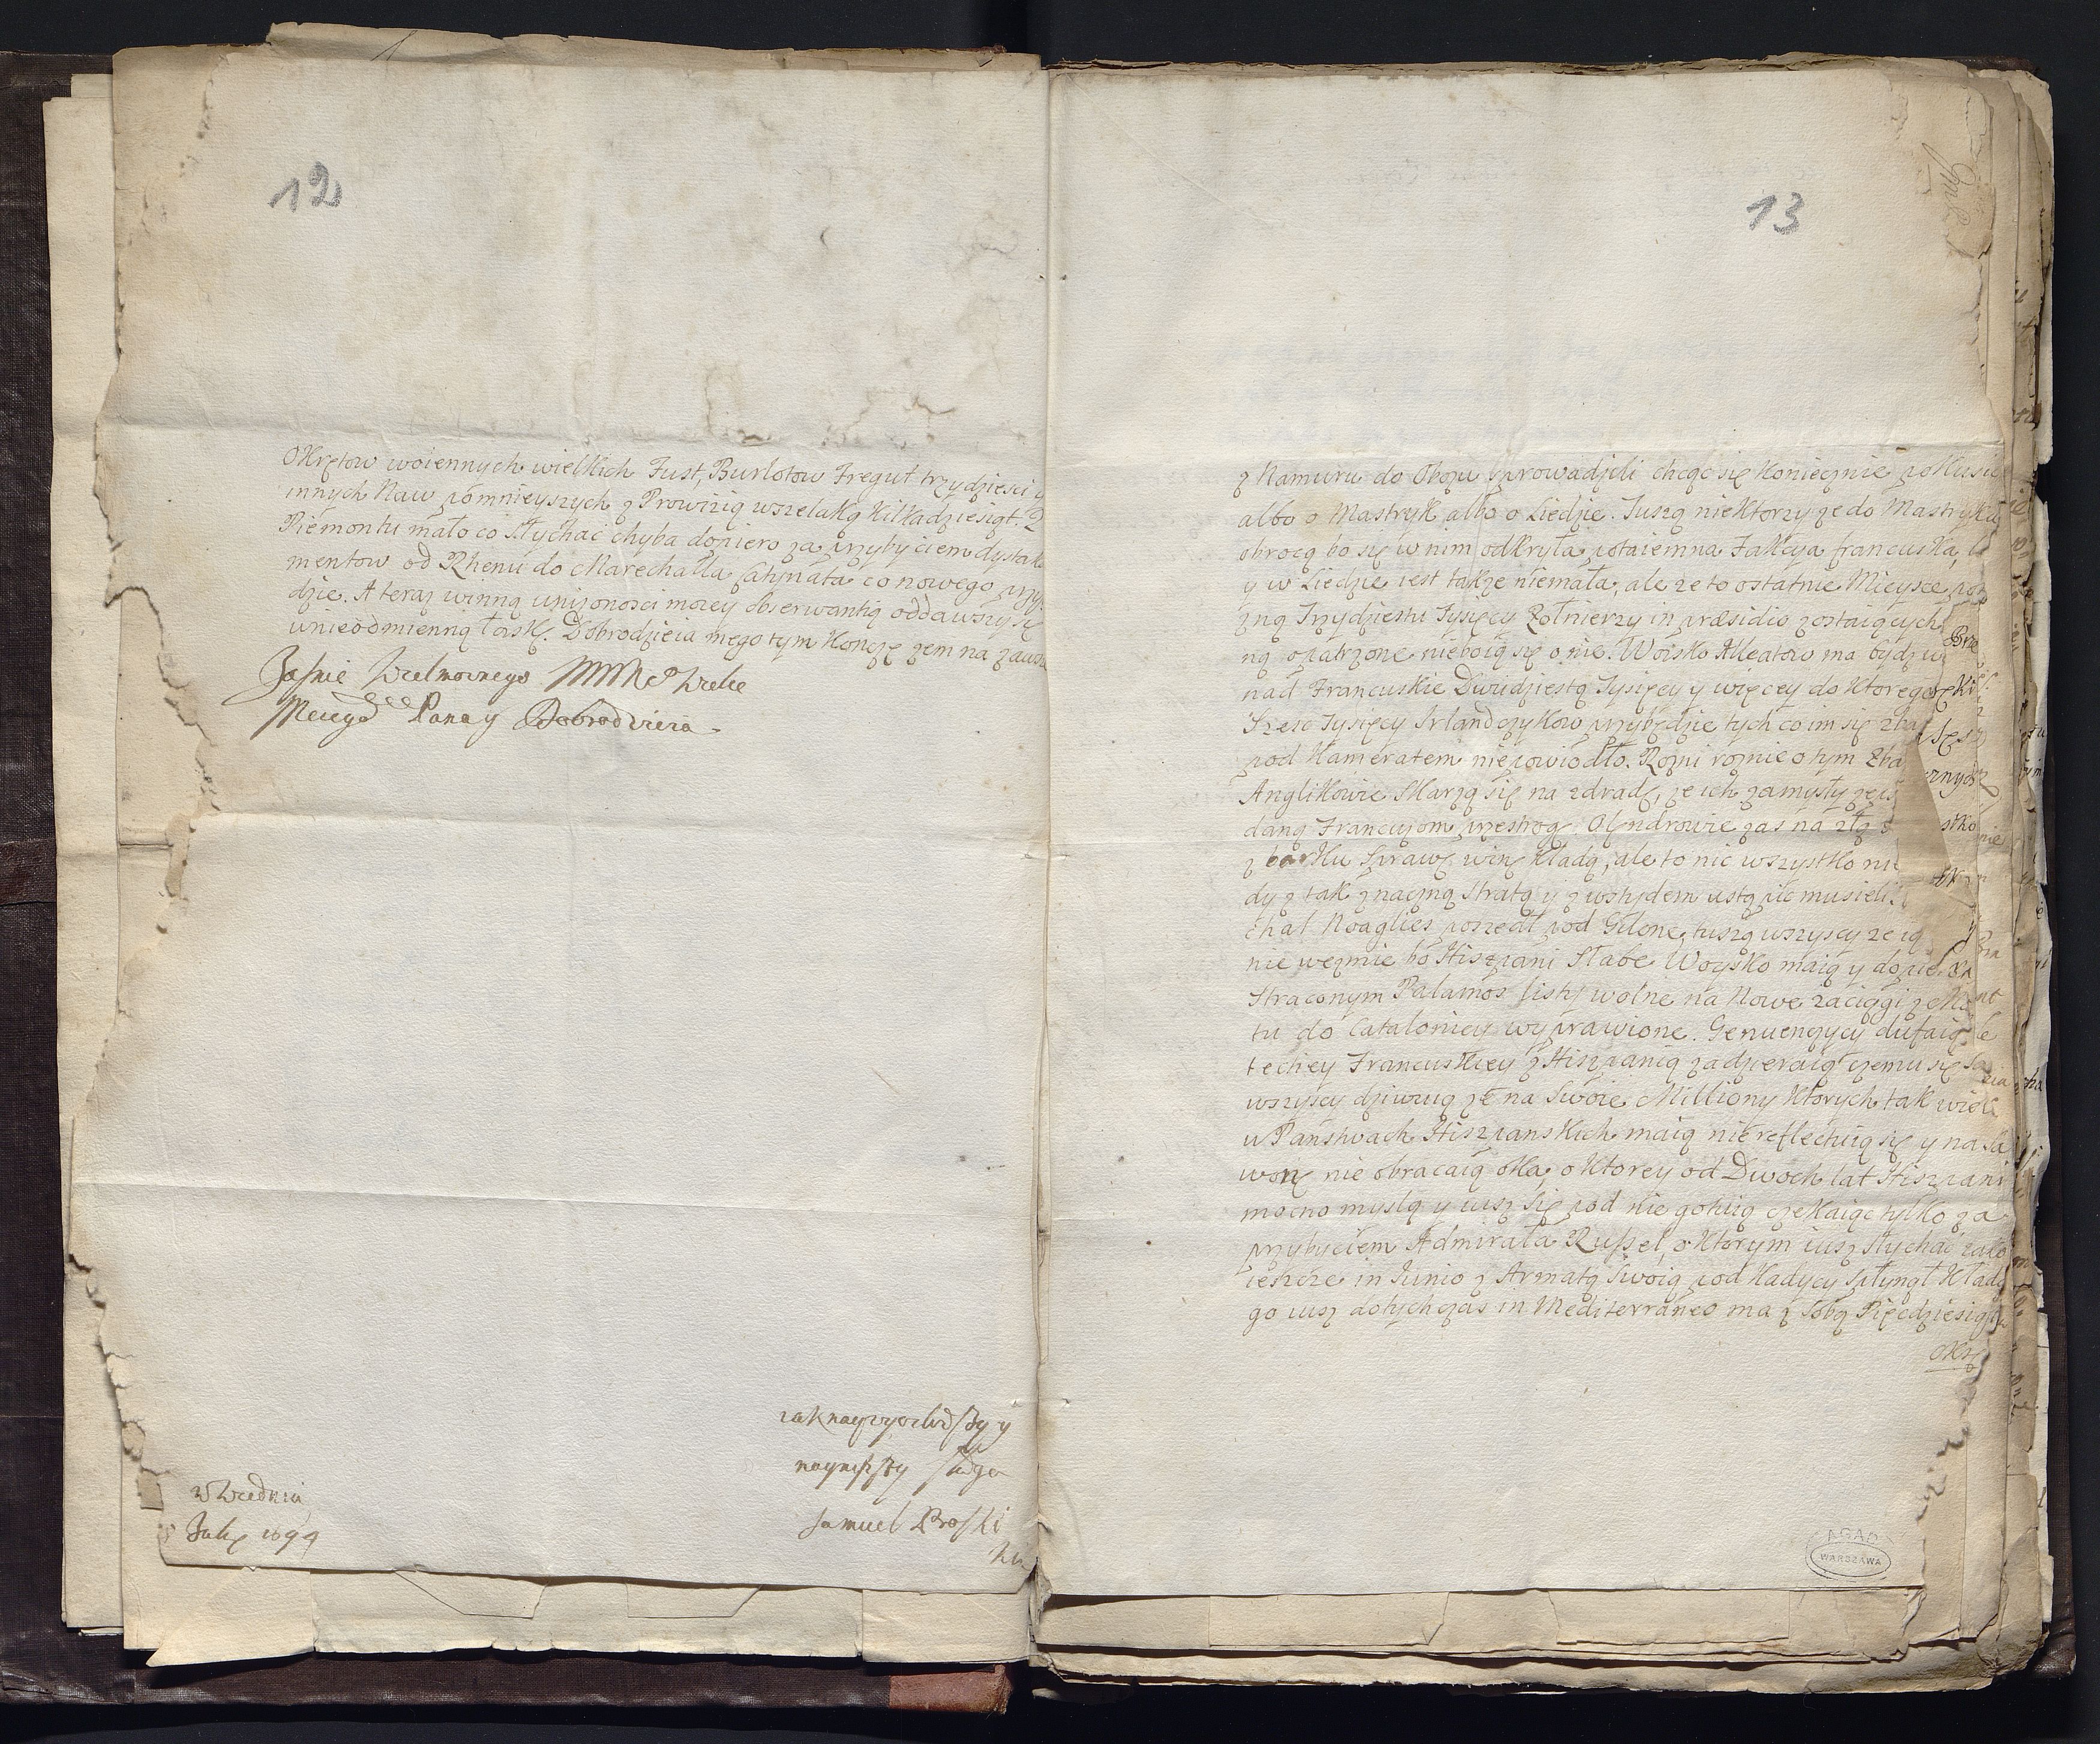 12
Okrętow woiennych wielkich Fust, Burlotow Fregut trzydziesci y
innych Naw pomnieyszych z Prowizią wszelaką kilkadziesiąt. Z
Piemontu mało co słychać chyba dopiero za przybyciem dystaka
mentow od Rhenu do Marechałła Catynata co nowego przy
dzie. A teraz winną unizonosci moiey obserwantią oddawszy się
unieodmienną łask. Dobrodzieia mego tym konczę zem na zawsze
Jasnie Wielmoznego
Mego Pana y Dobrodzieia
zak nayzyczliwszy y
nayniszszy sługa
Samuel Proski
w Wiedniu
July 1694
13
z Namuru do Obozu sprowadzili chcąc się koniecznie pokusic
albo o Mastryk albo o Liedzie. Tuszą niektorzy ze do Mastryku
obrocą bo się w nim odkryła potaiemna Fakcya francuska,
y w Liedzie iest także niemała, ale ze to ostatnie Mieysce
zną Trzydziestu Tysięcy Zołnierzy in præsidio zostaiących
ną opatrzone nieboią się o nie. Woisko Alleatow ma bydz
nad Francuskie Dwudziestą Tysięcy y więcey do ktorego
Szesc Tysięcy Irlandczykow przybędzie tych co im się
pod Kameratem niepowiodło. Rozni roznie o tym
Anglikowie skarzą się na zdradę, ze ich zamysły
daną Francuzom przestrogę. Olendrowie zas na złą
sprawę winę kładą, ale to nic wszystko
dy z tak znaczną stratą y z wstydem ustąpic musieli.
chal Noaglies poszedł pod Gilonę, tuszą wszyscy ze ią
nie wezmie bo Hiszpani słabe Woysko maią y dopie
straconym Palamos listy wolne na Nowe zaciągi
tu do Cataloniey wyprawione. Genuenczycy dufaiąc
tectiey Francuskiey z Hiszpanią zadzieraią czemu się
wszyscy dziwuią ze na swoie Milliony ktorych tak wiele
w Panstwach Hiszpanskich maią nie reflectuią się y na Sa
wonę nie obracaią oka, o ktorey od Dwoch lat Hiszpani
mocno myslą y iusz się pod nie gotuią czekaiąc tylko za
przybyciem Admirała Russel, o ktorym iusz słychać zako
ieszcze in Junio z Armatą swoią pod Kadycy spłynął kładą
go iusz dotychczas in Mediterraneo ma z sobą Pięcdziesiąt
Okrę
AGAD
WARSZAWA